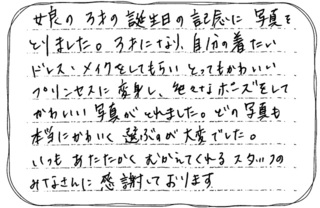 女良の3才の誕生日の記念に写真を
とりました。3才になり、自分の着たい
ドレス・メイクをしてもらい とってもかわいい
プリンセスに変身し、色々なポーズをして
かわいい写真がとれました。どの写真も
本当にかわいく選ぶのが大変でした。
いつもあたたかくむかえてくれるスタッフの
みなさんに感謝しております